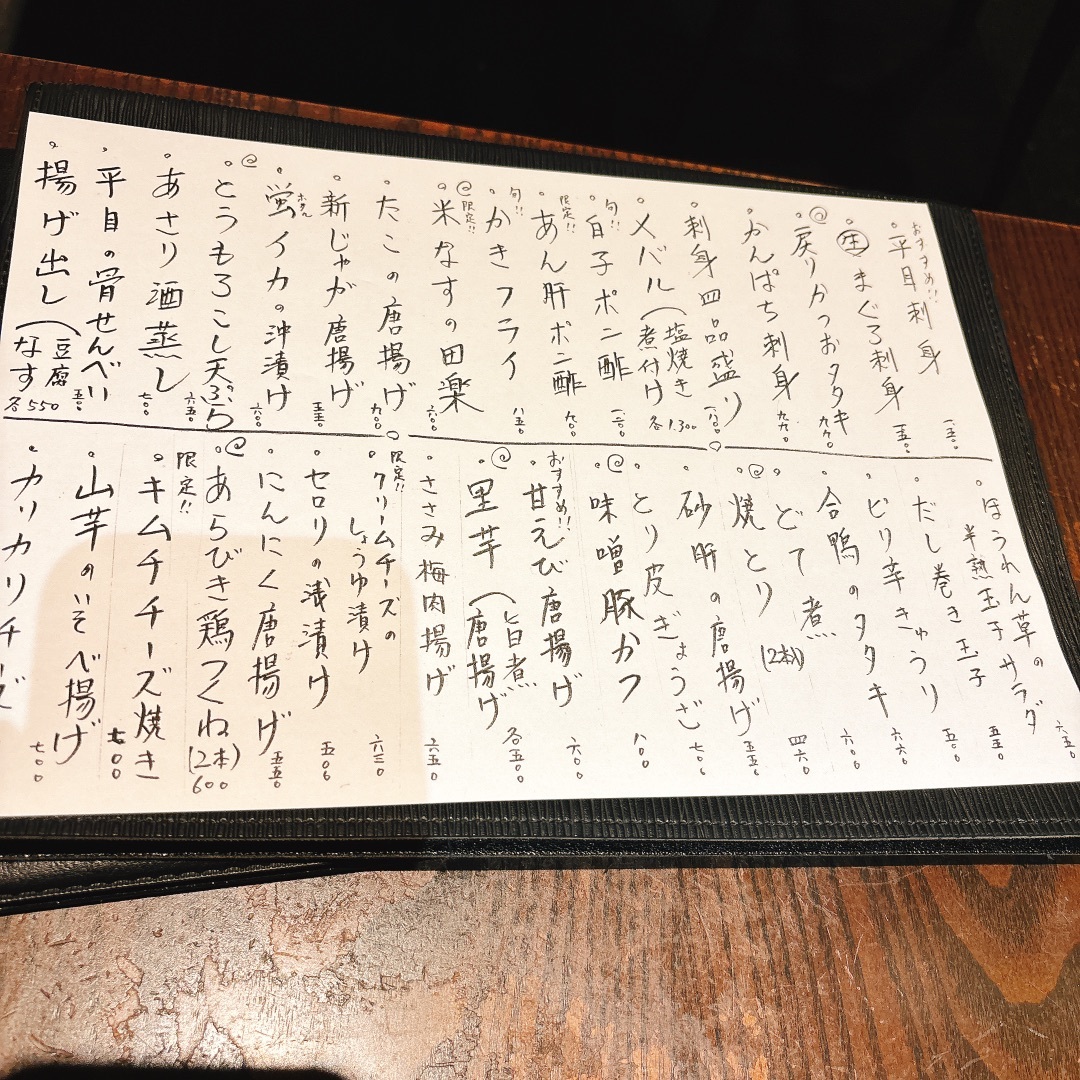 おすすめ!!
平目刺身
生まぐろ刺身
@戻りかつおタタキ 九九〇
かんぱち刺身 九九〇
刺身四品盛り
メバル(塩焼き 煮付け 各1.300
旬!!
白子ポン酢
限定!!
あん肝ポン酢 九〇〇
旬!!
かきフライ 八五〇
@限定!!
米なすの田楽 六〇〇
たこの唐揚げ 九〇〇
新じゃが唐揚げ 五五〇
ホタル
蛍イカの沖漬け 六〇〇
@とうもろこし天ぷら 六五〇
あさり酒蒸し 七〇〇
平目の骨せんべい 五〇〇
揚げ出し(豆腐 なす 各550
ほうれん草の
半熟玉子サラダ 六五〇
だし巻き玉子 五五〇
ピリ辛きゅうり 五〇〇
合鴨のタタキ 六六〇
どて煮 六〇〇
@焼とり(2本) 四六〇
砂肝の唐揚げ 五五〇
とり皮ぎょうざ 七〇〇
@味噌豚かつ
おすすめ!!
甘えび唐揚げ 六〇〇
@里芋(旨煮 唐揚げ 各五〇〇
ささみ梅肉揚げ 六五〇
限定!!
クリームチーズの
しょうゆ漬け 六三〇
セロリの浅漬け 五〇〇
にんにく唐揚げ 五五〇
@あらびき鶏つくね(2本) 600
限定!!
キムチチーズ焼き 七00
山芋のいそべ揚げ 七〇〇
カリカリチーズ